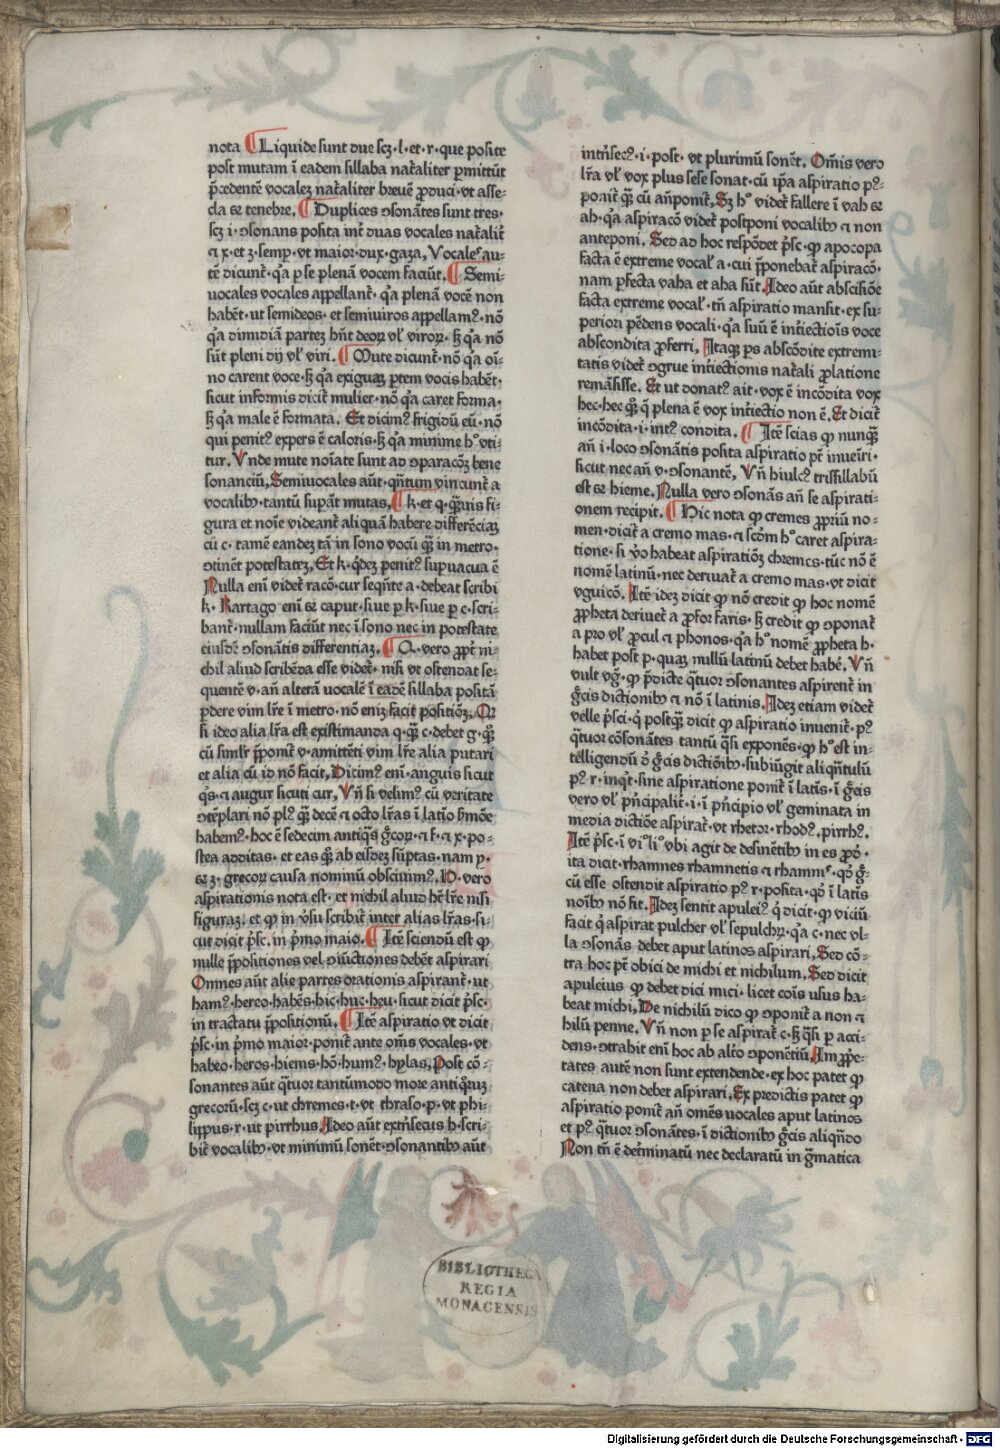 nota ¶ Liquide sunt due scꝫ·l·et·r·que posite
post mutam ī eadem sillaba nat᷑aliter ꝑmittūt
p̄cedentē vocalez nat᷑aliter breuē ꝓduci·vt asse-
cla ⁊ tenebre. ¶ Duplices ɔsonātes sunt tres·
scꝫ i·ɔsonans posita int᷑ duas vocales nat᷑alit᷑
⁊ x·et ʒ·semꝑ·vt maior·dux·gaza, Vocales au-
tē dicunt᷑·qꝛa ꝑ se plenā vocem faciūt. ¶ Semi-
uocales vocales appellant᷑·qꝛa plenā vocē non
habēt·ut semideos·et semiuiros appellamꝰ·nō
qꝛa dimidiā partez hn̄t deoꝝ vl̓ viroꝝ·sꝫ qꝛa nō
sūt pleni dij vl̓ viri. ¶ Mute dicunt᷑·nō qꝛa oī-
no carent voce·sꝫ qꝛa exiguaꝫ ꝑtem vocis habēt·
sicut informis dicit᷑ mulier·nō qꝛa caret forma·
sꝫ qꝛa male ē formata. Et dicimꝰ frigidū eū·nō
qui penitꝰ expers ē caloris·sꝫ qꝛa minime hꝰ vti-
tur. Vnde mute noīate sunt ad ɔparacōꝫ bene
sonanciū, Semiuocales aūt·qn̄tum vincunt᷑ a
vocalibꝰ·tantū supāt mutas, ¶ k·et q·qꝫuis fi-
gura et noīe videant᷑ aliquā habere differēciaꝫ
cū c·tamē eandeꝫ tā in sono vocū qꝫ in metro·
ɔtinēt potestateꝫ, Et k·qͥdeꝫ penitꝰ supuacua ē
Nulla enī videt᷑ racō·cur seqn̄te a·debeat scribi
k· Kartago enī ⁊ caput·siue ꝑ k·siue ꝑ c·scri-
bant᷑·nullam faciūt nec ī sono nec in potestate
eiusdē ɔsonātis differentiaꝫ. ¶ Q·vero ꝓpt᷑ ni-
chil aliud scribēda esse videt᷑·nisi vt ostendat se-
quentē v·an̄ alterā uocalē ī eadē sillaba positā
ꝑdere vim lr̄e ī metro·nō eniꝫ facit positōꝫ, Qꝛ
si ideo alia lr̄a est existimanda q·qꝫ c·debet g·qꝫ
cū simlr̄ p̄ponit᷑ v·amittēti vim lr̄e alia putari
et alia cū id nō facit, Dicimꝰ enī·anguis sicut
qͥs·⁊ augur sicuti cur, Vn̄ si velimꝰ cū veritate
ɔtēplari nō plꝰ qꝫ decē ⁊ octo lr̄as ī latio sermōe
habemꝰ·hoc ē sedecim antiqͣs g̊coꝝ·⁊ f·⁊ x·po-
stea additas·et eas qꝫ ab eisdeꝫ sūptas·nam y·
⁊ ʒ·grecoꝝ causa nominū obsciuimꝰ, H·vero
aspirationis nota est·et nichil aliud hꝫ lr̄e nisi
figuraꝫ·et ꝙ in v̓su scribit᷑ inter alias lr̄as·si-
cut dicit p̄sc·in p̓mo maio. ¶ Itē sciendū est ꝙ
nulle p̄positiones vel ɔiūctiones debēt aspirari
Omnes aūt alie partes orationis aspirant᷑·ut
hamꝰ·hereo·habēs·hic·huc·heu·sicut dicit p̄sc·
in tractatu p̄positionū. ¶ Itē aspiratio vt dicit
p̄sc·in p̓mo maior·ponit᷑ ante om̄s vocales·vt
habeo·heros·hiems·hō·humꝰ·hylas, Post cō-
sonantes aūt qͣtuor tantūmodo more antiqͦꝝ
grecorū·scꝫ c·ut chremes·t·vt thraso·p·vt phi-
lippus·r·ut pirrhus, Adeo aūt extn̄secus h·scri-
bit᷑ vocalibꝰ·vt minimū sonēt·ɔsonantibꝰ aūt
int᷑n̄secꝰ·i·post·vt plurimū sonēt. Om̄is vero
lr̄a vl̓ vox plus sese sonat·cū ip̄a aspiratio pꝰ-
ponit᷑ qꝫ cū an̄ponit᷑, Sꝫ hꝰ videt᷑ fallere ī vah ⁊
ah·qꝛa aspiracō videt᷑ postponi vocalibꝰ ⁊ non
anteponi. Sed ad hoc respōdet p̄sc·ꝙ apocopa
facta ē extreme vocal̓ a·cui p̄ponebat᷑ aspiracō·
nam ꝑfecta vaha et aha sūt, Ideo aūt abscisiōe
facta extreme vocal̓·tn̄ aspiratio mansit·ex su-
periori pēdens vocali·qꝛa suū ē int᷑iectiōis voce
abscondita ꝓferri, Itaqꝫ ps abscōdite extremi-
tatis videt᷑ ɔgrue int᷑iectionis nat᷑ali ꝓlatione
remāsisse. Et ut donatꝰ ait·vox ē incōdita vox
hec·hec qꝫ q̄ plena ē vox int᷑iectio non ē. Et dicit᷑
incōdita·i·intꝰ condita. ¶ Itē scias ꝙ nunqꝫ
an̄ i·loco ɔsonātis posita aspiratio pt̄ inueīri·
sicut nec an̄ v·ɔsonantē, Vn̄ hiulcꝰ trissillabū
est ⁊ hieme. Nulla vero ɔsonās an̄ se aspirati-
onem recipit. ¶ Hic nota ꝙ cremes ꝓpriū no-
men·dicit᷑ a cremo mas·⁊ scd̄m hꝰ caret aspira-
tione·si vͦo habeat aspiratiōꝫ chremes·tūc nō ē
nomē latinū·nec deriuat᷑ a cremo mas·vt dicit
vguicō. Itē ideꝫ dicit ꝙ nō credit ꝙ hoc nomē
ꝓpheta deriuet᷑ a ꝓfor faris·sꝫ credit ꝙ ɔponat᷑
a pro vl̓ ꝓcul ⁊ phonos·qꝛa hꝰ nomē ꝓpheta h·
habet post p·quaꝫ nullū latinū debet habē᷑. Vn̄
vult vg̊·ꝙ p̄dicte qͣtuor ɔsonantes aspirent᷑ in
g̊cis dictionibꝰ ⁊ nō ī latinis. Ideꝫ etiam videt᷑
velle p̄sci·q̄ postqꝫ dicit ꝙ aspiratio inuenit᷑·pꝰ
qͣtuor cōsonātes tantū qͣsi exponēs·ꝙ hꝰ est in-
telligendū ō g̊cis dictiōibꝰ·subiūgit aliqn̄tulū
pꝰ r·inqͥt·sine aspiratione ponit᷑ ī latīs·ī g̊cis
vero vl̓ pn̄cipalit᷑·i·ī pn̄cipio vl̓ geminata in
media dictiōe aspirat᷑·vt rhetor·rhodꝰ, pirrhꝰ.
Itē p̄sc·ī viͦ liͦ vbi agit de desinētibꝰ in es ꝓdͦ·
ita dicit·rhamnes rhamnetis ⁊ rhamnis·qͦ g̊-
cū esse ostendit aspiratio pꝰ r·posita·qͦ ī latīs
noībꝰ nō fit. Ideꝫ sentit apuleiꝰ q̄ dicit·ꝙ viciū
facit q̄ aspirat pulcher vl̓ sepulchꝝ·qꝛa c·nec vl-
la ɔsonās debet aput latinos aspirari, Sed cō-
tra hoc pt̄ obici de michi et nichilum. Sed dicit
apuleius ꝙ debet dici mici·licet cōis usus ha-
beat michi, De nichilū dico ꝙ ɔponit᷑ a non ⁊
hilū penne. Vn̄ non ꝑ se aspirat᷑ c·sꝫ qͣsi ꝑ acci-
dens·ɔtrahit enī hoc ab alt᷑o ɔponētiū, Imꝓpe-
tates autē non sunt extendende·ex hoc patet ꝙ
catena non debet aspirari, Ex predictis patet ꝙ
aspiratio ponit᷑ an̄ om̄es uocales aput latinos
et pꝰ qͣtuor ɔsonātes·ī dictionibꝰ g̊cis aliqn̄do
Non tn̄ ē det᷑minatū nec declaratū in g̊matica
BIBLIOTHECA
REGIA
MONACENSIS
Digitalisierung gefördert durch die Deutsche Forschungsgemeinschaft - DFG